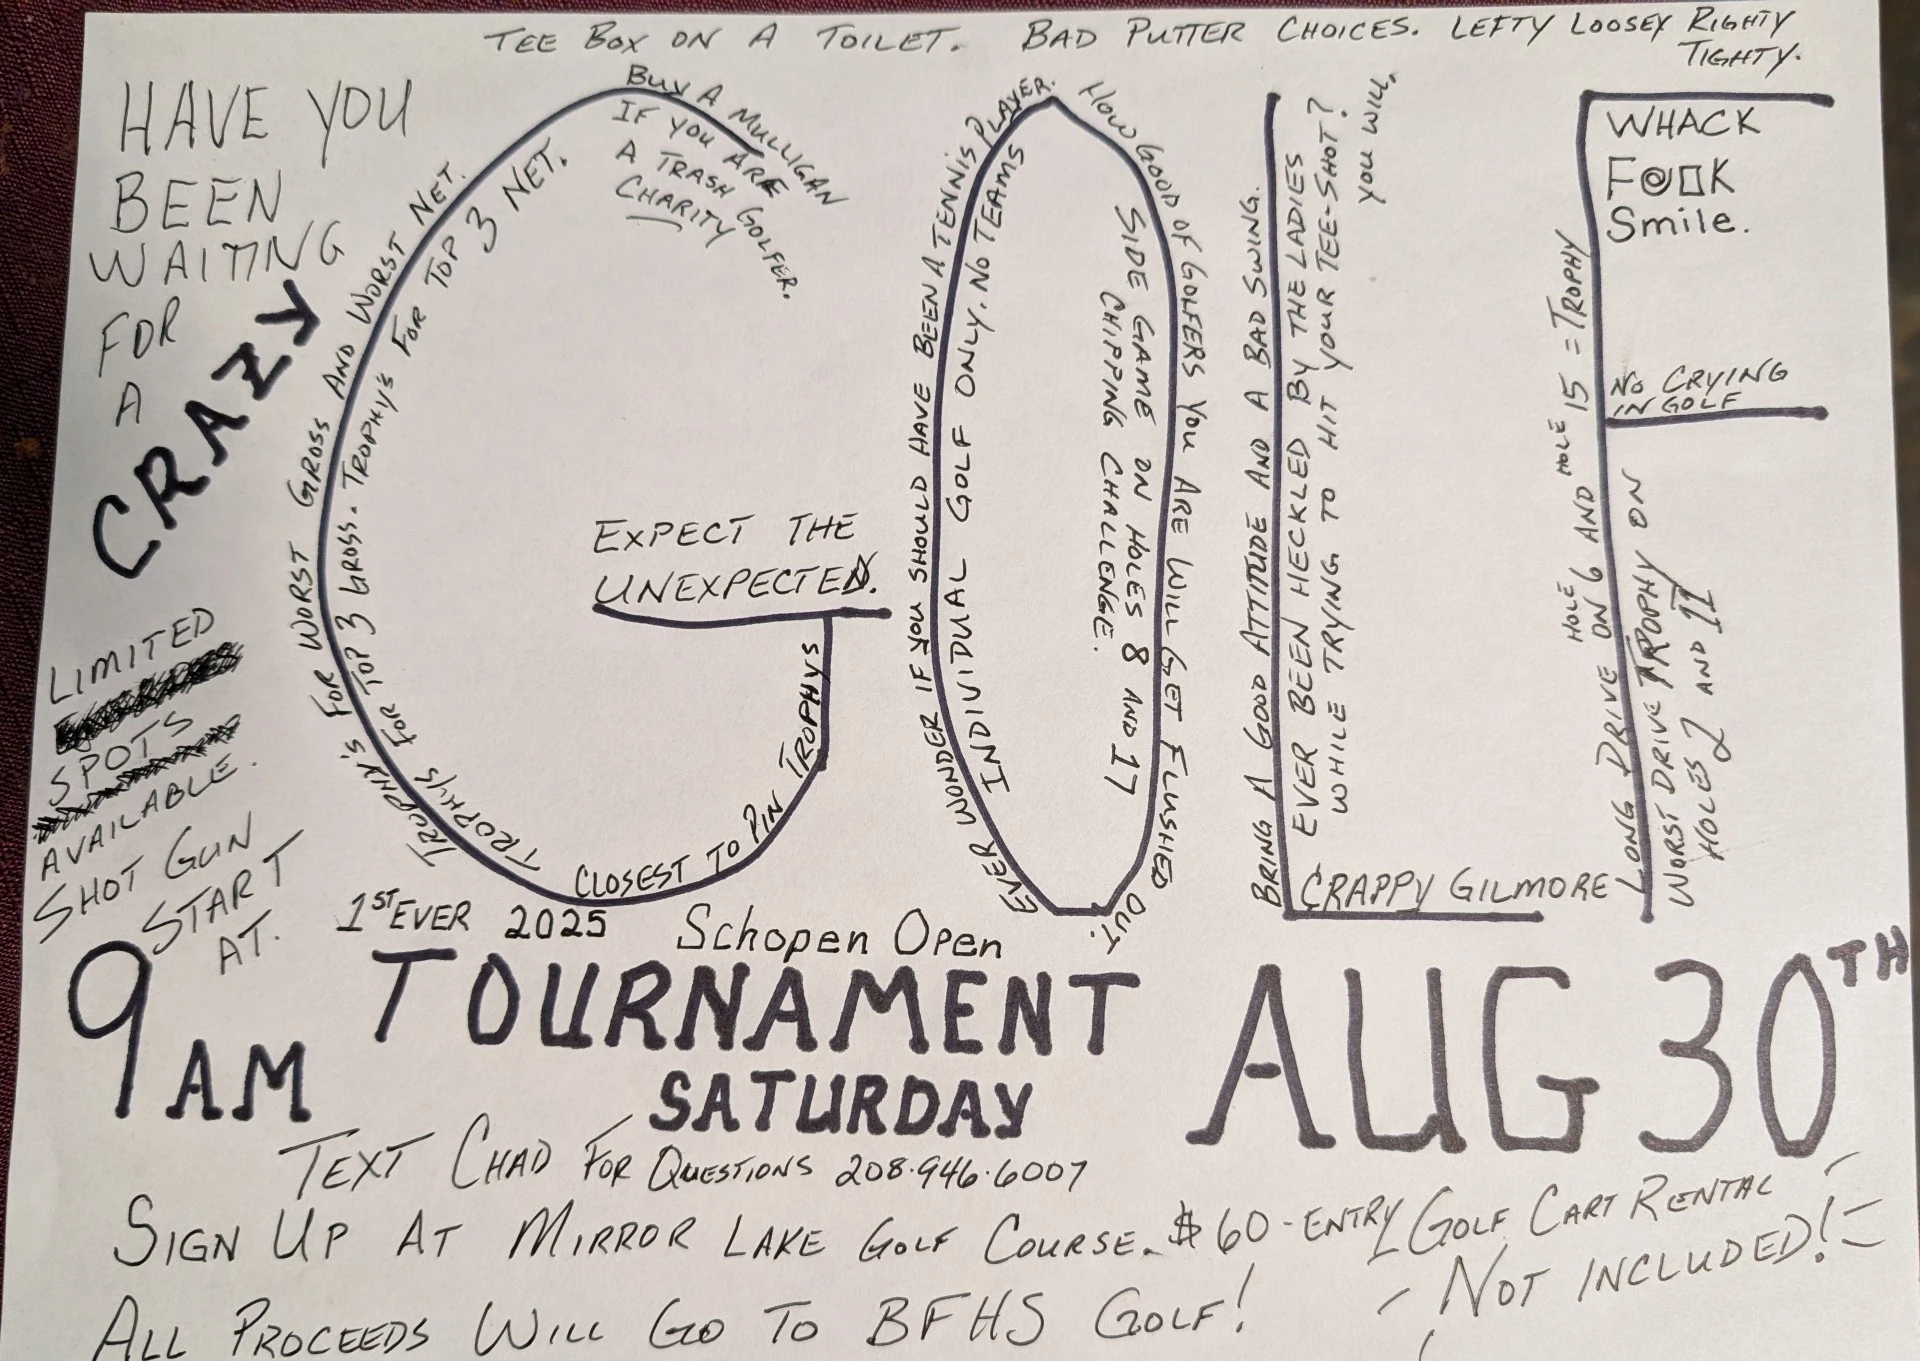 TEE BOX ON A TOILET. BAD PUTTER CHOICES. LEFTY LOOSEY RIGHTY
TIGHTY.
HAVE YOU
BEEN
WAITING
FOR
A
CRAZY
LIMITED
SPOTS
AVAILABLE.
SHOT GUN
START
AT.
9 AM
G
BUY A MULLIGAN
IF YOU ARE
A TRASH GOLFER.
CHARITY
TROPHY'S FOR WORST GROSS AND WORST NET.
TROPHYS FOR TOP 3 GROSS. TROPHY'S FOR TOP 3 NET.
EXPECT THE
UNEXPECTED.
CLOSEST TO PIN TROPHYS
O
EVER WONDER IF YOU SHOULD HAVE BEEN A TENNIS PLAYER.
INDIVIDUAL GOLF ONLY. NO TEAMS
HOW GOOD OF GOLFERS YOU ARE WILL GET FLUSHED OUT.
SIDE GAME ON HOLES 8 AND 17
CHIPPING CHALLENGE.
L
BRING A GOOD ATTITUDE AND A BAD SWING.
EVER BEEN HECKLED BY THE LADIES
WHILE TRYING TO HIT YOUR TEE-SHOT?
YOU WILL.
CRAPPY GILMORE
F
WHACK
F@□K
Smile.
NO CRYING
IN GOLF
LONG DRIVE ON HOLE 6 AND HOLE 15 = TROPHY
WORST DRIVE TROPHY ON
HOLES 2 AND 11
1ST EVER 2025 Schopen Open
TOURNAMENT AUG 30TH
SATURDAY
TEXT CHAD FOR QUESTIONS 208.946.6007
SIGN UP AT MIRROR LAKE GOLF COURSE. $60-ENTRY
GOLF CART RENTAL
NOT INCLUDED!
ALL PROCEEDS WILL GO TO BFHS GOLF!